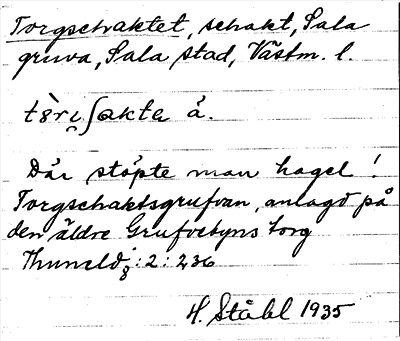 Torgschaktet, schakt, Sala
gruva, Sala stad, Västm. l.
Där stöpte man hagel!
Torgschaktsgrufvan, anlagd på
den äldre Grufvebyns torg
Thuneld: 2: 236
H. Ståhl 1935